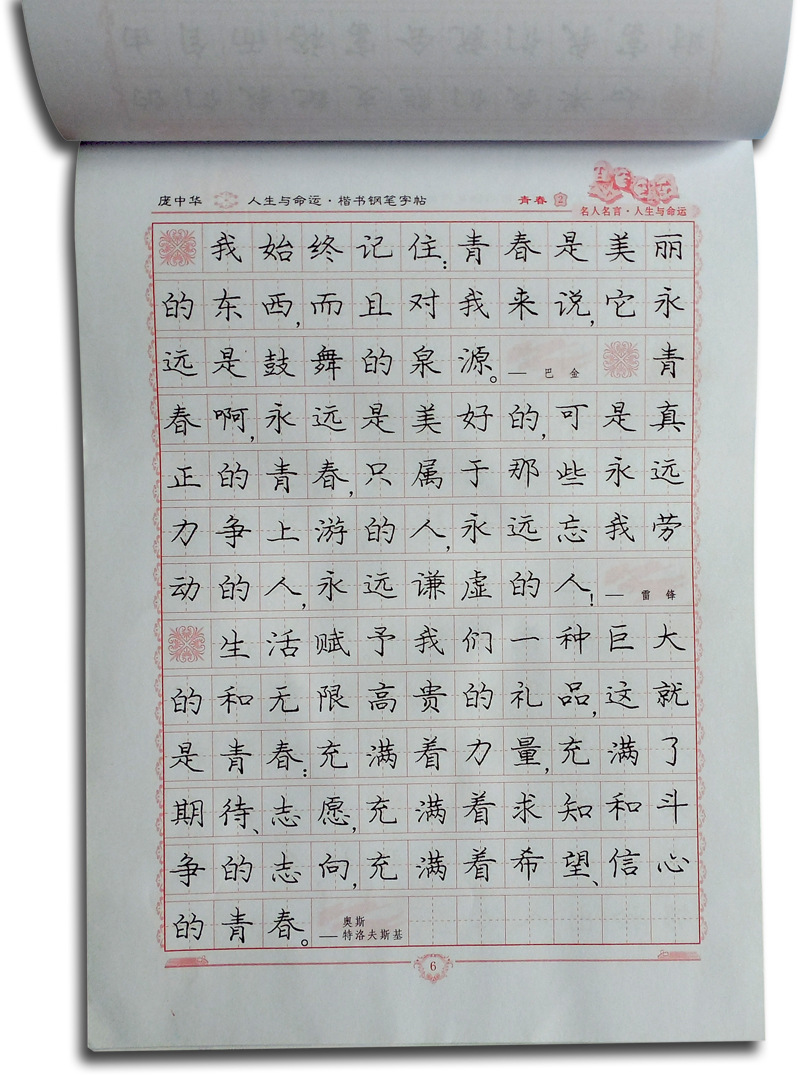 庞中华 人生与命运·楷书钢笔字帖 青春 2
名人名言·人生与命运
我始终记住:青春是美丽
的东西,而且对我来说,它永
远是鼓舞的泉源。——巴金 青
春啊,永远是美好的,可是真
正的青春,只属于那些永远
力争上游的人,永远忘我劳
动的人,永远谦虚的人!——雷锋
生活赋予我们一种巨大
的和无限高贵的礼品,这就
是青春:充满着力量,充满了
期待、志愿,充满着求知和斗
争的志向,充满着希望、信心
的青春。——奥斯
特洛夫斯基
6